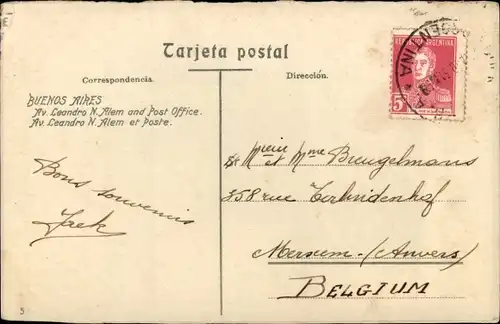 Tarjeta postal
Correspondencia.
Dirección.
BUENOS AIRES
Av. Leandro N. Alem and Post Office.
Av. Leandro N. Alem et Poste.
ARGENTINA
5
Bons souvenirs
Jack
et Mme Breugelmans
358 rue Terlindenhof
Merxem - (Anvers)
BELGIUM
5